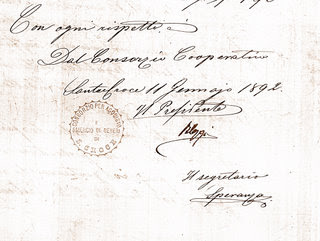 Con ogni rispetto è
Dal Consorzio Cooperativo
Santa Croce 11 Gennajo 1892.
Il Presidente
Il segretario
Speranza
S. CROCE